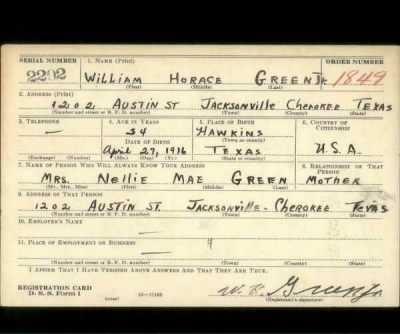 SERIAL NUMBER 1. NAME (Print) ORDER NUMBER
2202 WILLIAM HORACE GREEN JR 1849
(First) (Middle) (Last)
2. ADDRESS (Print)
1202 AUSTIN ST JACKSONVILLE CHEROKEE TEXAS
(Number and street or R. F. D. number) (Town) (County) (State)
3. TELEPHONE 4. AGE IN YEARS 5. PLACE OF BIRTH 6. COUNTRY OF CITIZENSHIP
— 24 HAWKINS
DATE OF BIRTH (Town or county)
April 27, 1916 TEXAS U.S.A.
(Exchange) (Number) (Mo.) (Day) (Yr.) (State or country)
7. NAME OF PERSON WHO WILL ALWAYS KNOW YOUR ADDRESS 8. RELATIONSHIP OF THAT PERSON
MRS. Nellie MAE GREEN MOTHER
(Mr., Mrs., Miss) (First) (Middle) (Last)
9. ADDRESS OF THAT PERSON
1202 AUSTIN ST. JACKSONVILLE - CHEROKEE TEXAS
(Number and street or R. F. D. number) (Town) (County) (State)
10. EMPLOYER'S NAME
11. PLACE OF EMPLOYMENT OR BUSINESS
(Number and street or R. F. D. number) (Town) (County) (State)
I AFFIRM THAT I HAVE VERIFIED ABOVE ANSWERS AND THAT THEY ARE TRUE.
REGISTRATION CARD
D. S. S. Form 1 (over) W. H. Green Jr.
(Registrant's signature)